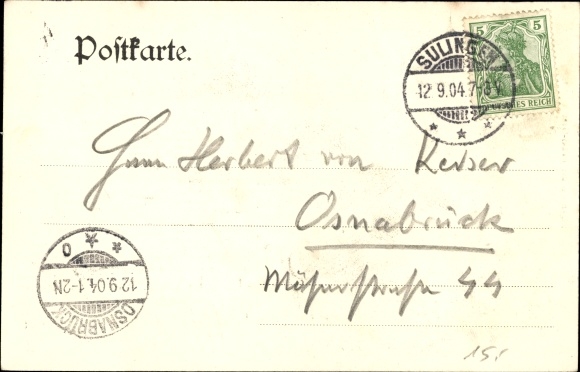 Postkarte.
5 5
SULINGEN
12.9.04.7-8V.
DEUTSCHES REICH
Herrn Herbert von
Osnabrück
44
OSNABRÜCK
12.9.04.1-2N
15.-